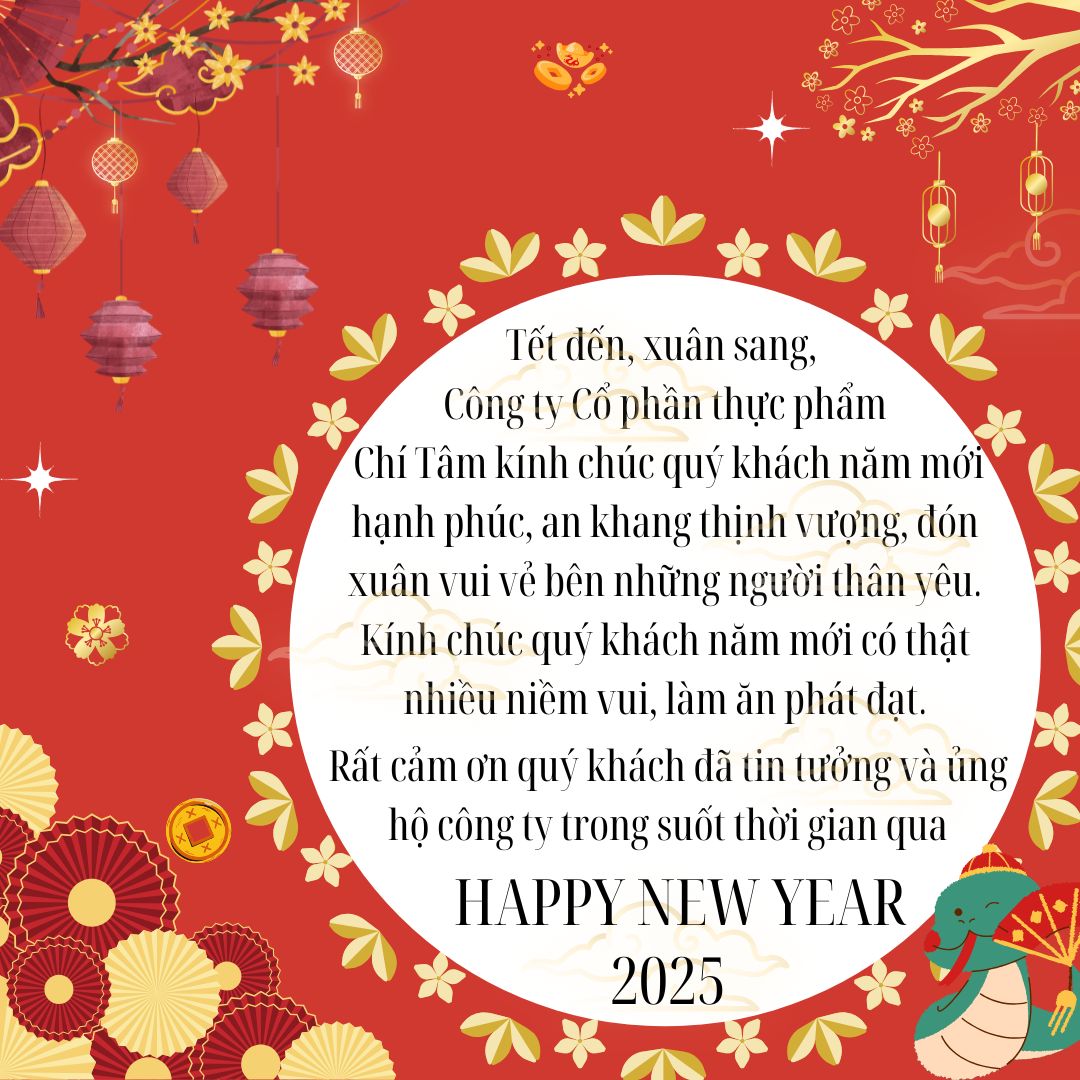 Tết đến, xuân sang,
Công ty Cổ phần thực phẩm
Chí Tâm kính chúc quý khách năm mới
hạnh phúc, an khang thịnh vượng, đón
xuân vui vẻ bên những người thân yêu.
Kính chúc quý khách năm mới có thật
nhiều niềm vui, làm ăn phát đạt.
Rất cảm ơn quý khách đã tin tưởng và ủng
hộ công ty trong suốt thời gian qua
HAPPY NEW YEAR
2025